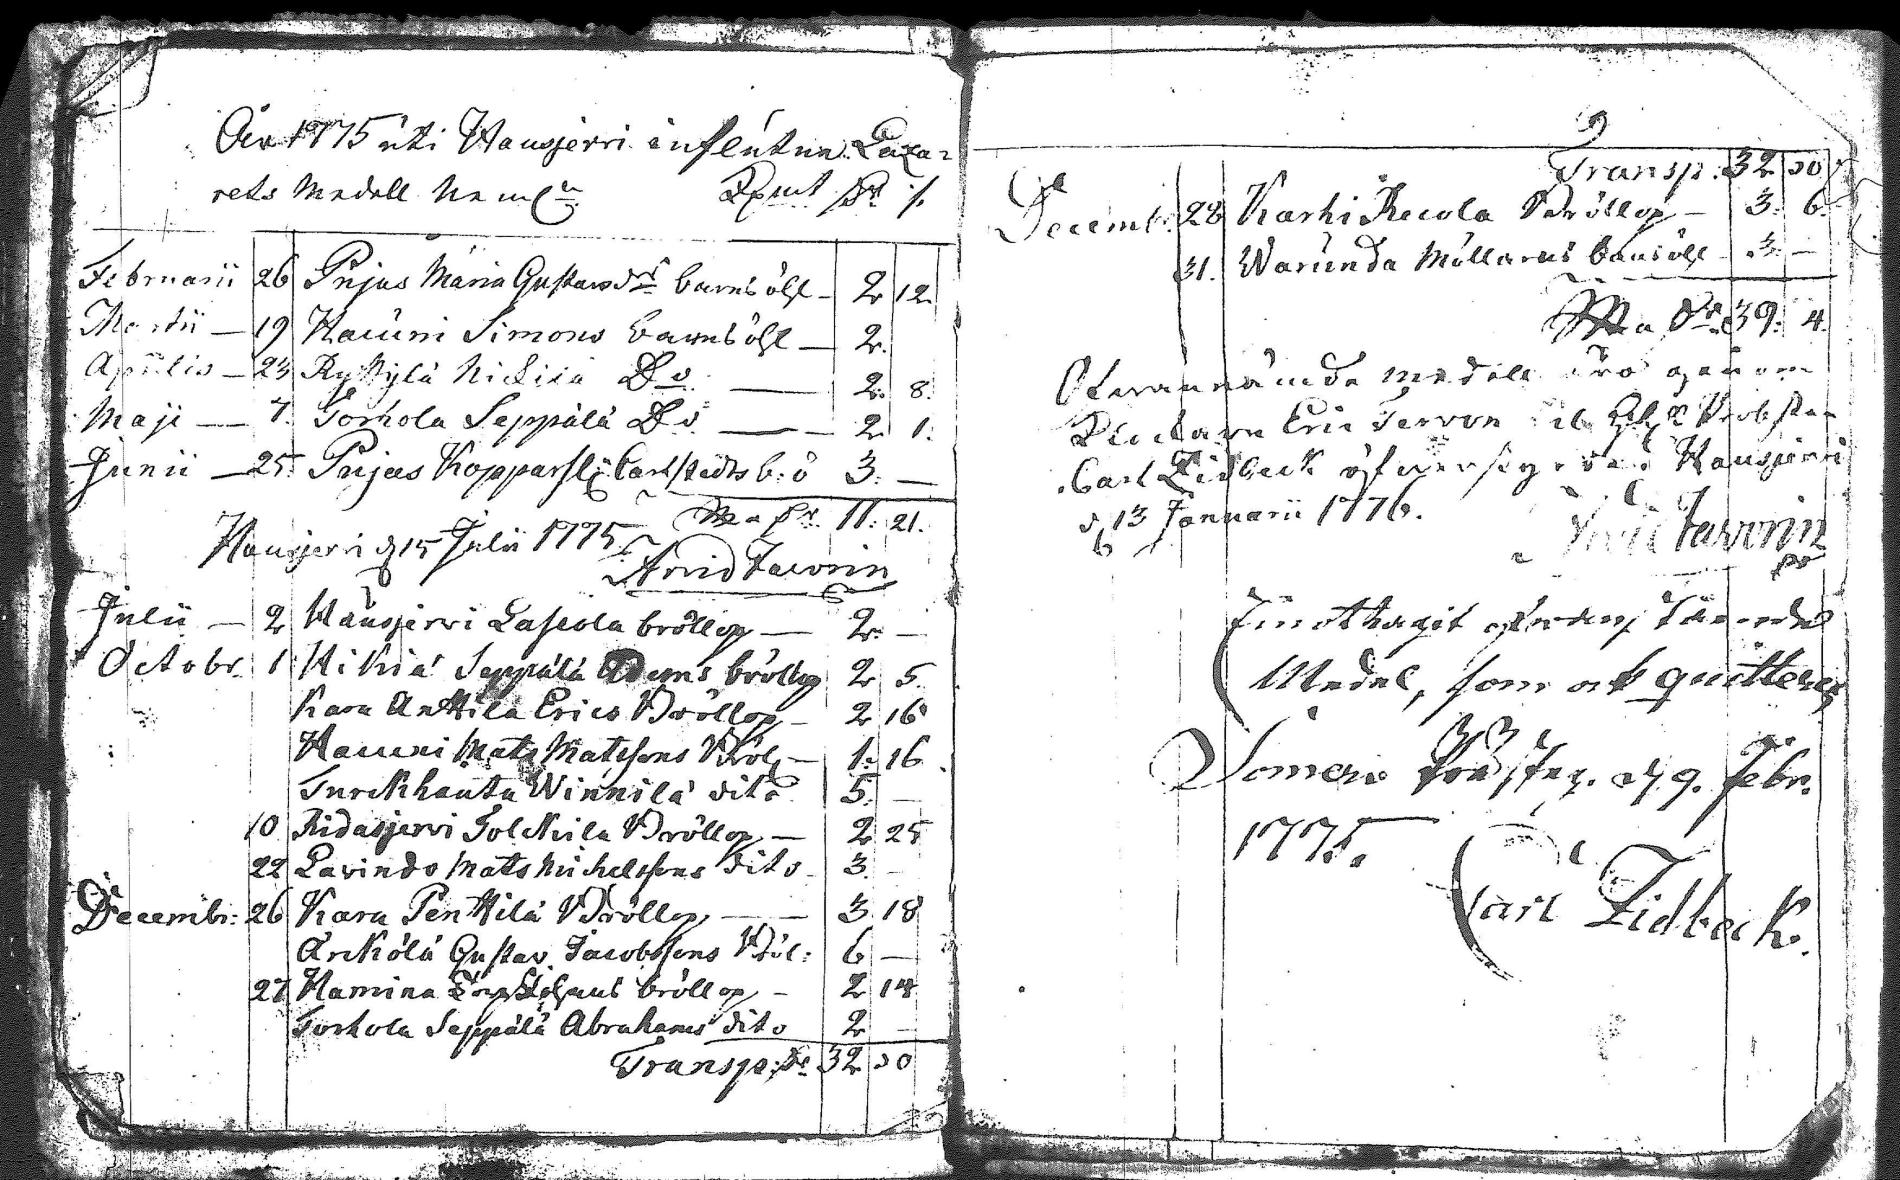 Åir 1775 uti Hausjervi influtne Laza-
rets Medell Neml:n
Februarii 26 Pujas Maria Gustavsdr barnsöhl - 2 12.
Martii - 19 Hauuni Simons barnsöhl - 2.
Aprilis - 23 Ryttylä Nickilä Do - 2. 8.
Maji - 7. Torhola Seppälä Do - 2 1.
Junii - 25. Pujas Carlstedts b: ö 3. -
11. 21.
Hausjervi d 15 Julii 1775
Arvid Tavorin
Julii - 2 Hausjervi Lassola bröllop - 2. -
Octobr. 1 Hikiä Seppälä Adams bröllop 2 5.
Kara Anttila Erics Bröllop - 2 16
Hauuni Mats Matssons Bröl - 1. 16
Turckhauta Winnilä dito 5. -
10 Ridasjervi Tolckila Bröllop - 2 25
22 Lavindo Mats Michelssons dito - 3. -
Decembr: 26 Kara Penttilä Bröllop - - 3 18
Ärckölä Gustav Jacobssons Bröl: 6 -
27 Hamina bröllop - 2 14
Torhola Seppälä Abrahams dito 2 -
Transp: Dr 32 30
9
Transp: 32 30
Decemb: 28 Karhi Recola Bröllop - 3. 6.
31. Warunda Möllarens barnsöhl - 3. -
Dr. 39. 4.
Ofvannämde medell äro genom
Klockaren Eric Tervon til Probsten
Carl Lidbeck öfversende Hausjervi
d 13 Januarii 1776.
Arvid Tavorin
Emottagit ofvan
Medel, som och quitteras
Somero d 9. Febr.
1775.
Carl Lidbeck.